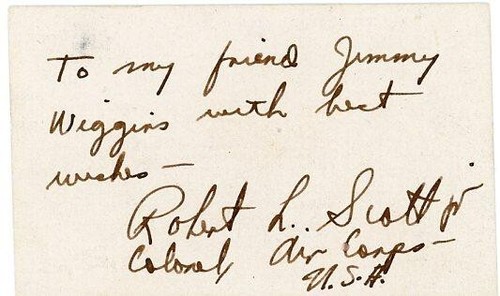 To my friend Jimmy
Wiggins with best
wishes —
Robert L. Scott jr
Colonel, Air Corps —
U.S.A.